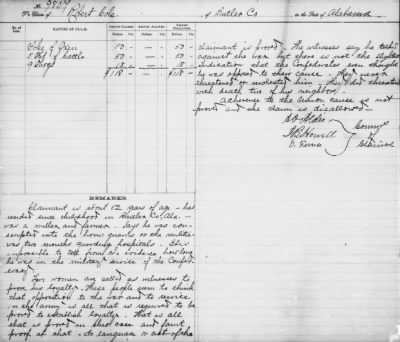 No. 9807
The Claim of Robert Cole of Butler Co in the State of Alabama
No. of Item. NATURE OF CLAIM. AMOUNT CLAIMED. AMOUNT ALLOWED. AMOUNT DISALLOWED.
Dollars Cts. Dollars Cts. Dollars Cts.
1 Yoke of Oxen 50 — 50 —
50 — 50 —
9 Hogs 18 — 18 —
$118 — $118 —
REMARKS.
Claimant is about 52 years of age — has
resided since childhood in Butler Co, Ala. —
was a miller and farmer. Says he was con-
scripted into the home guards or the militia
was two months guarding hospitals. It is
impossible to tell from the evidence how long
he was in the military service of the Confed-
eracy.
Two women are called as witnesses to
prove his loyalty. These people seem to think
that opposition to the war and to service
in the army is all that is required to be
proved to establish loyalty. That is all
that is proved in this case and faint
proof at that. No language or act of the
claimant is proved. The witnesses say he talked
against the war but there is not the slightest
indication that the Confederates even thought
he was opposed to their cause. They never
threatened or molested him. They did threaten
with death two of his neighbors.
Adherence to the Union cause is not
proved and the claim is disallowed.
A. O. Aldis
J. B. Howell
O. Ferriss
Commrs
of
Claims